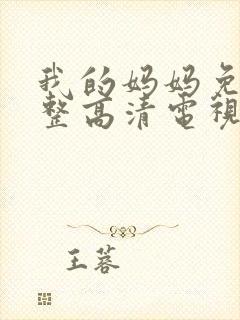 我的妈妈免
整高清電視
王蓉